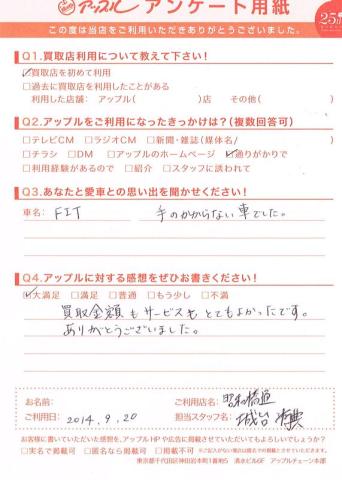 アップル アンケート用紙
この度は当店をご利用いただきありがとうございました。
25
Q1.買取店利用について教えて下さい!
☑買取店を初めて利用
□過去に買取店を利用したことがある
利用した店舗: アップル( )店 その他( )
Q2.アップルをご利用になったきっかけは?(複数回答可)
□テレビCM □ラジオCM □新聞・雑誌(媒体名/ )
□チラシ □DM □アップルのホームページ ☑通りがかりで
□利用経験があるので □紹介 □スタッフに誘われて
Q3.あなたと愛車との思い出を聞かせください!
車名: FIT 手のかからない車でした。
Q4.アップルに対する感想をぜひお書きください!
☑大満足 □満足 □普通 □もう少し □不満
買取金額もサービスもとてもよかったです。
ありがとうございました。
お名前: ご利用店名: 昭和橋通
ご利用日: 2014.9.20 担当スタッフ名:
お客様に書いていただいた感想を、アップルHPや広告に掲載させていただいてもよろしいでしょうか?
□実名で掲載可 □匿名なら掲載可 □掲載不可 ※ご記入がない場合は匿名とさせていただきます
東京都千代田区神田岩本町1番地5 清水ビル6F アップルチェーン本部